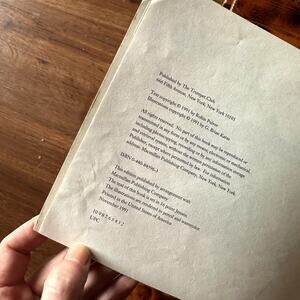 Published by The Trumpet Club
666 Fifth Avenue, New York, New York 10103
Text copyright © 1991 by Robin Pulver
Illustrations copyright © 1991 by G. Brian Karas
All rights reserved. No part of this book may be reproduced or
including photocopying, recording or by any
system, without the written permission of the
Publisher, except where permitted by law. For information
address: Macmillan Publishing Company, New York, New York.
This edition published by arrangement with
Macmillan Publishing Company
The text of this book is set in 16 point
The illustrations are rendered in pencil and watercolor.
Printed in the United States of America
November 1991
10 9 8 7 6 5 4 3 2
UPC